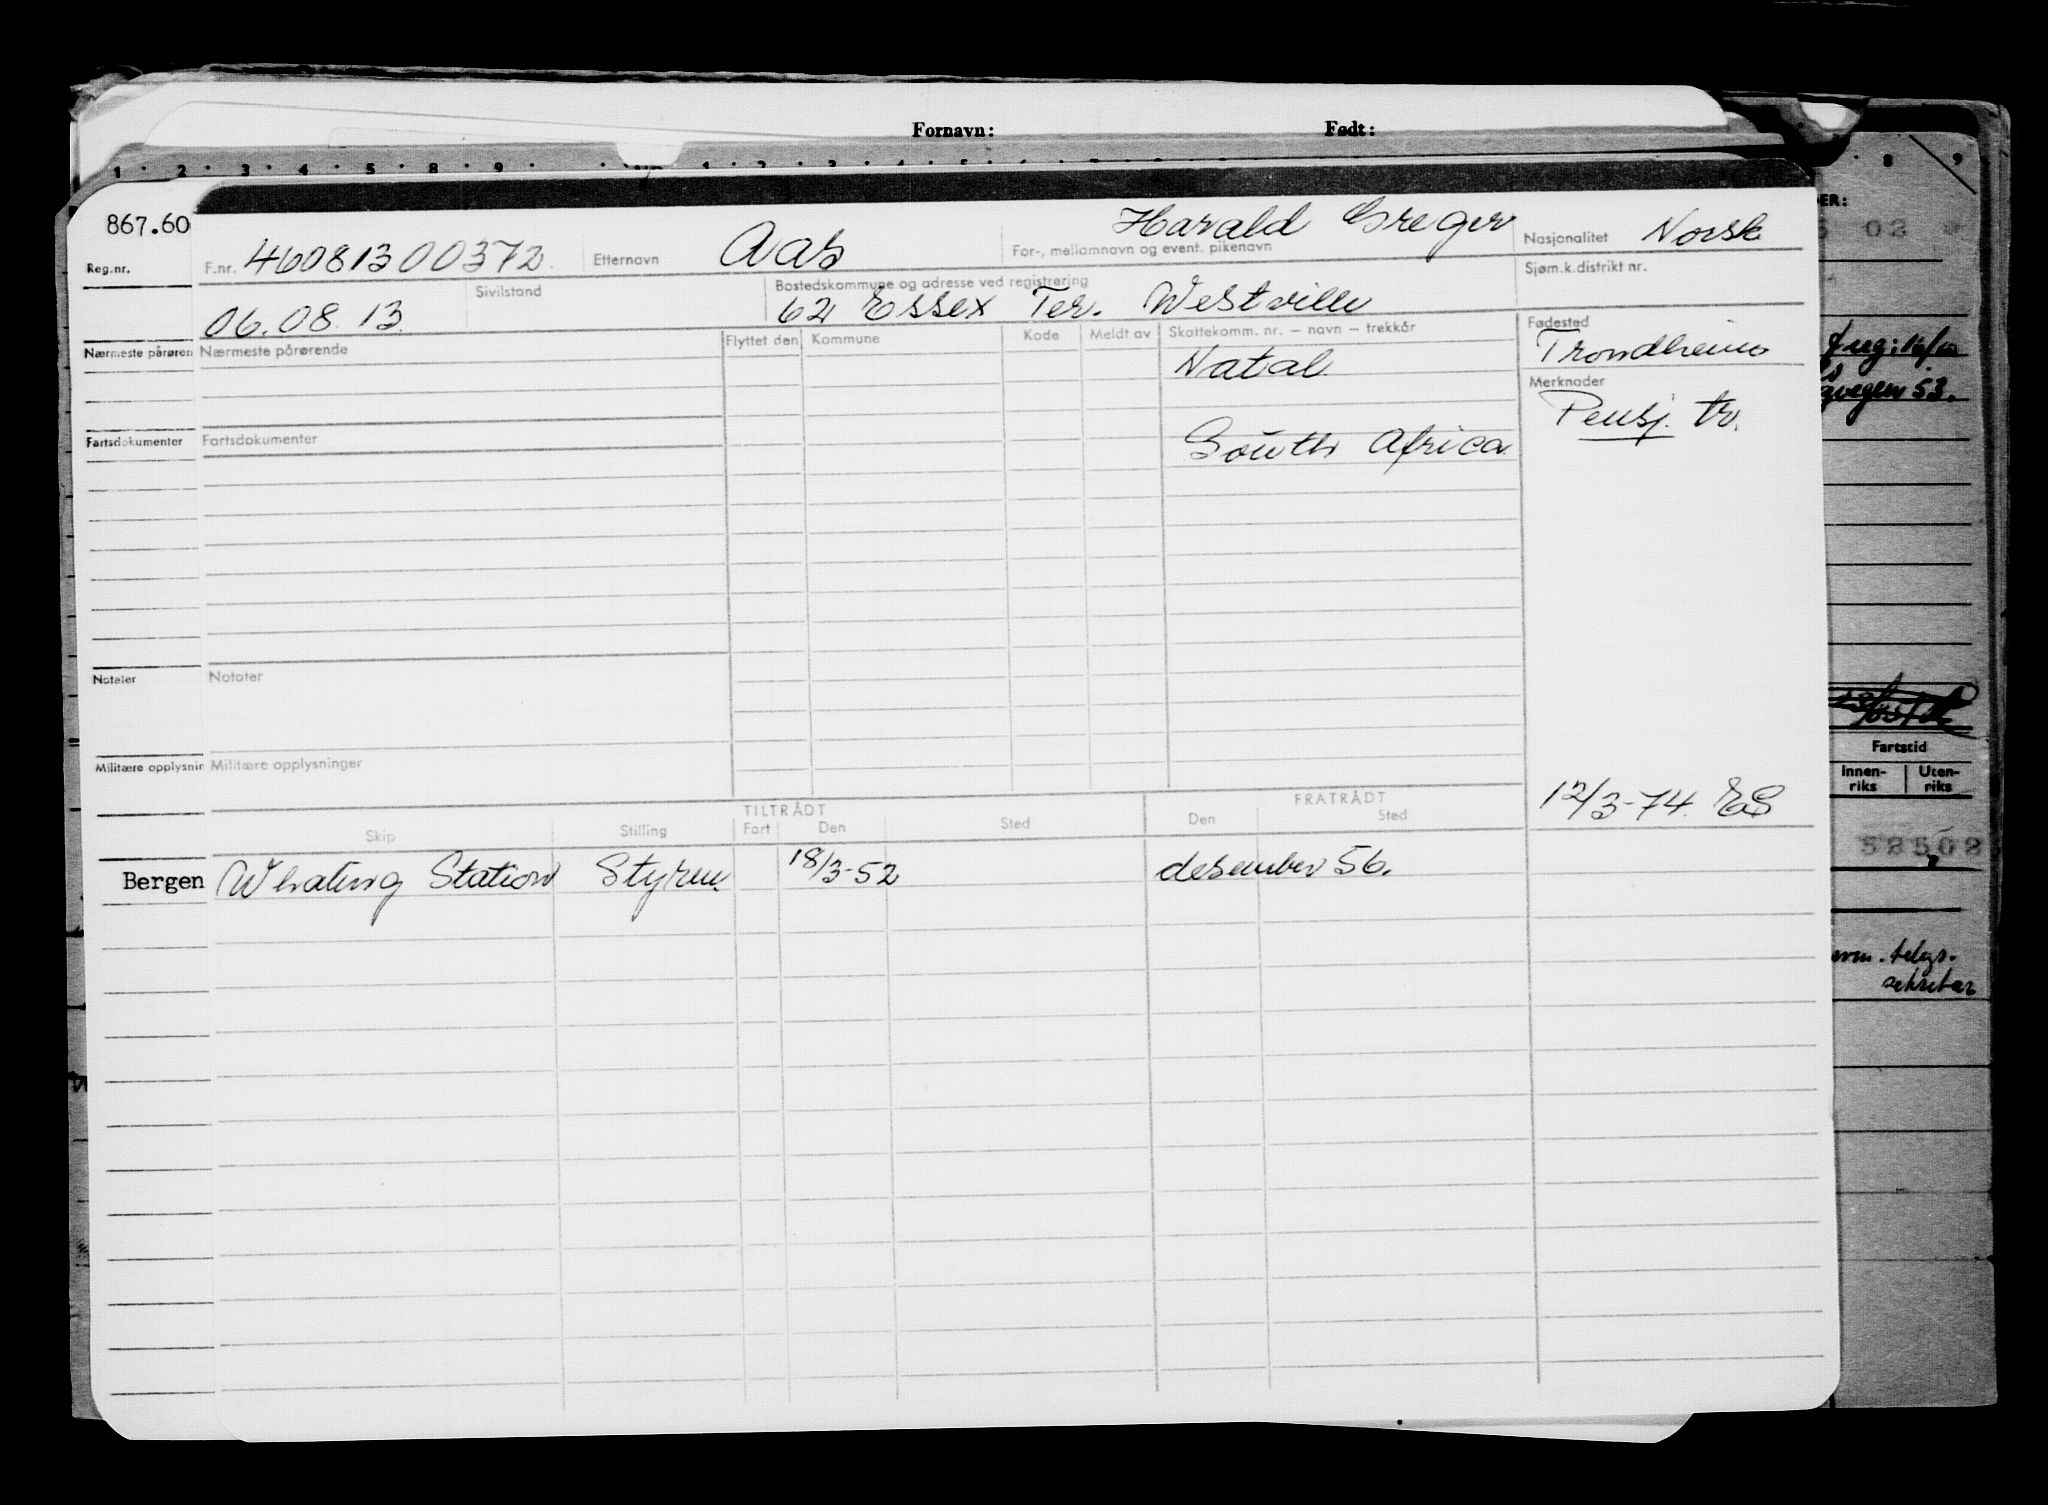 Fornavn: Født:
1 . 2 . 3 . 4 . 5 . 8 . 9 . 1 . 2 . 3 . 4 . 5
8 9
867.60
Harald Greger
F.nr. 46081300372. Etternavn Aas For-, mellomnavn og event. pikenavn Nasjonalitet Norsk
Reg.nr.
02
Sivilstand Bostedskommune og adresse ved registrering Sjøm.k.distrikt nr.
06.08.13 62 Essex Ter. Westville
Nærmeste pårøren Nærmeste pårørende Flyttet den Kommune Kode Meldt av Skattekomm. nr. – navn – trekkår Fødested
Natal Trondheim
Merknader
Pensj. tr.
53.
Fartsdokumenter Fartsdokumenter South Africa
Notater Notater
Militære opplysnin Militære opplysninger
Fartstid
Innen-riks Uten-riks
12/3-74. ES
TILTRÅDT FRATRÅDT
Skip Stilling Fart Den Sted Den Sted
Bergen Whaling Station Styrm. 18/3-52 desember 56.
52502
telegr.
sekretær